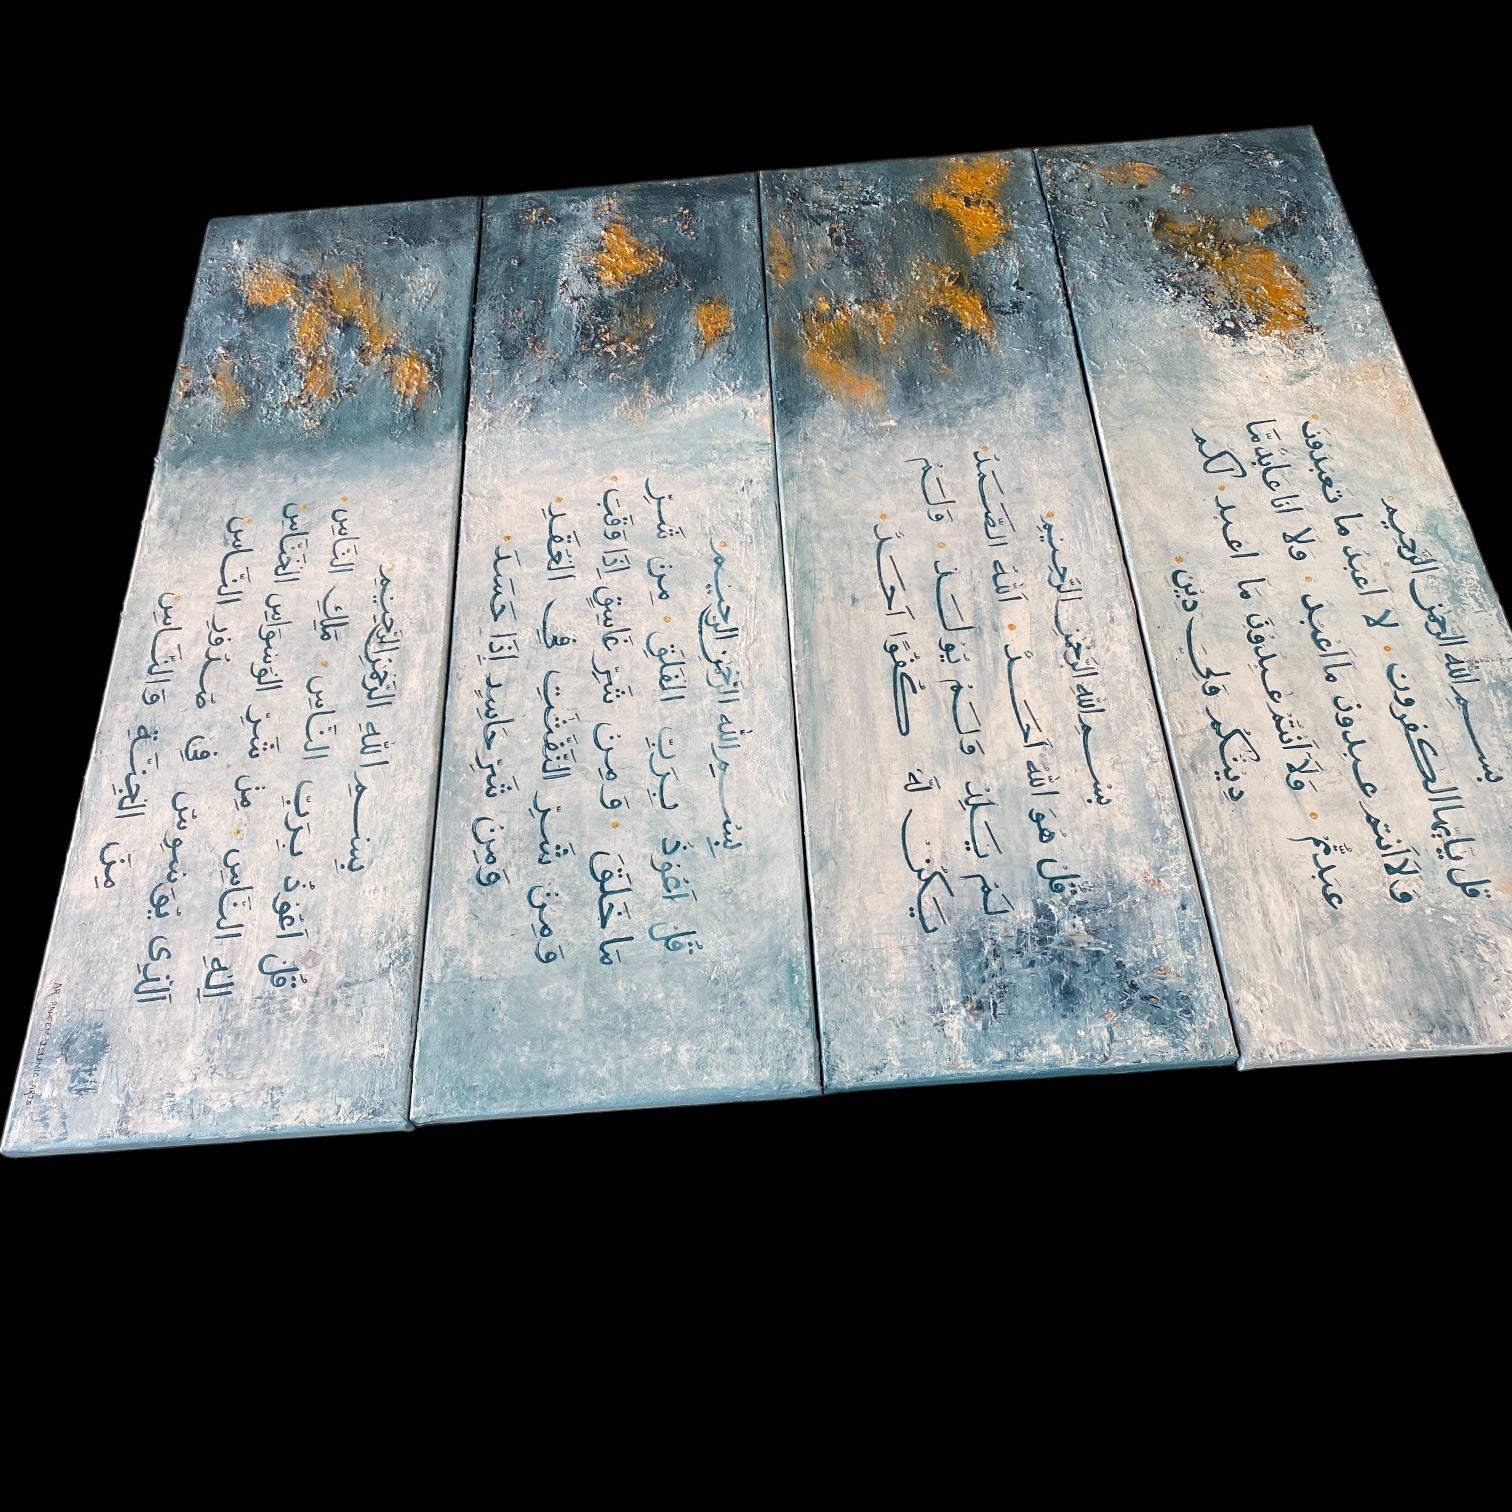 بِسْمِ اللهِ الرَّحْمٰنِ الرَّحِيمِ
قُلْ يٰٓاَيُّهَا الْكٰفِرُونَ لَا اَعْبُدُ مَا تَعْبُدُونَ
وَلَا اَنْتُمْ عٰبِدُونَ مَا اَعْبُدُ وَلَا اَنَا عَابِدٌ مَّا
عَبَدْتُّمْ وَلَا اَنْتُمْ عٰبِدُونَ مَا اَعْبُدُ لَكُمْ
دِيْنُكُمْ وَلِيَ دِيْنِ
بِسْمِ اللهِ الرَّحْمٰنِ الرَّحِيْمِ
قُلْ هُوَ اللهُ اَحَدٌ اَللهُ الصَّمَدُ
لَمْ يَلِدْ وَلَمْ يُوْلَدْ وَلَمْ
يَكُنْ لَّهٗ كُفُوًا اَحَدٌ
بِسْمِ اللهِ الرَّحْمٰنِ الرَّحِيْمِ
قُلْ اَعُوْذُ بِرَبِّ الْفَلَقِ مِنْ شَرِّ
مَا خَلَقَ وَمِنْ شَرِّ غَاسِقٍ اِذَا وَقَبَ
وَمِنْ شَرِّ النَّفّٰثٰتِ فِي الْعُقَدِ
وَمِنْ شَرِّ حَاسِدٍ اِذَا حَسَدَ
بِسْمِ اللهِ الرَّحْمٰنِ الرَّحِيْمِ
قُلْ اَعُوْذُ بِرَبِّ النَّاسِ مَلِكِ النَّاسِ
اِلٰهِ النَّاسِ مِنْ شَرِّ الْوَسْوَاسِ الْخَنَّاسِ
الَّذِى يُوَسْوِسُ فِيْ صُدُوْرِ النَّاسِ
مِنَ الْجِنَّةِ وَالنَّاسِ
ISLAMIC ARTS